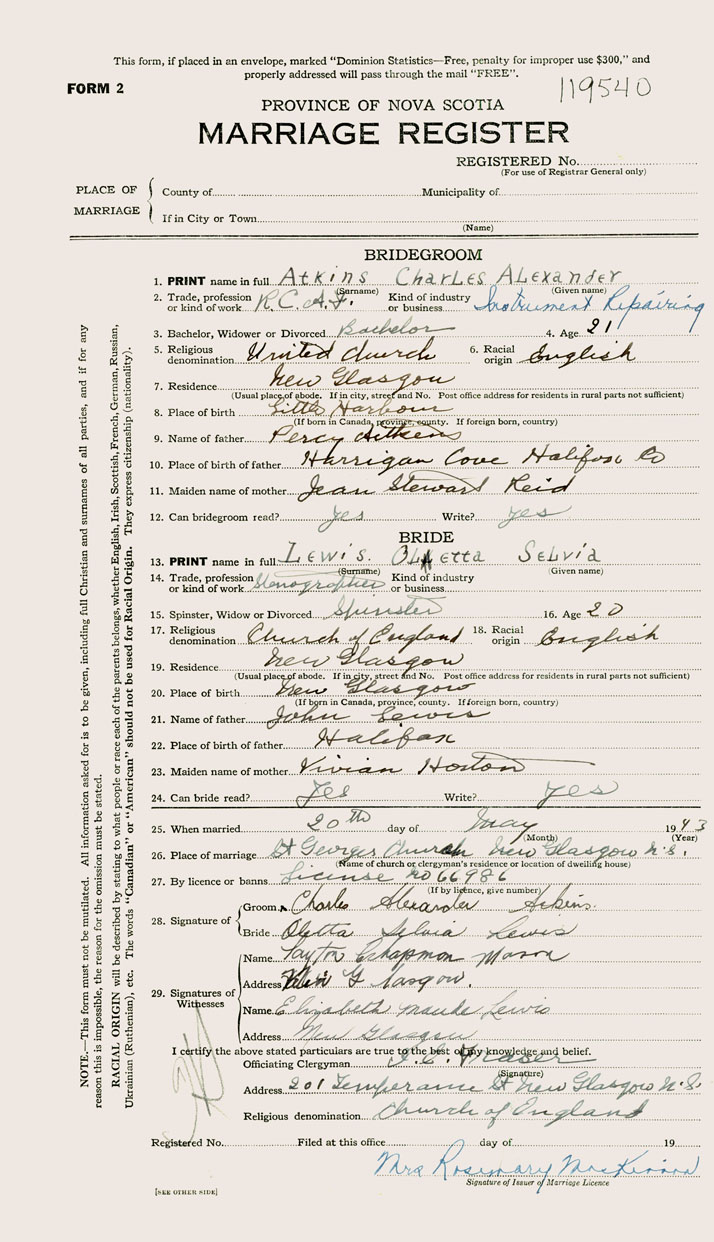 This form, if placed in an envelope, marked "Dominion Statistics—Free, penalty for improper use $300," and
properly addressed will pass through the mail "FREE".
FORM 2
119540
PROVINCE OF NOVA SCOTIA
MARRIAGE REGISTER
REGISTERED No.
(For use of Registrar General only)
PLACE OF MARRIAGE
County of Municipality of
If in City or Town
(Name)
BRIDEGROOM
1. PRINT name in full Atkins Charles Alexander
(Surname) (Given name)
2. Trade, profession or kind of work R.C.A.F. Kind of industry or business Instrument Repairing
3. Bachelor, Widower or Divorced Bachelor 4. Age 21
5. Religious denomination United Church 6. Racial origin English
7. Residence New Glasgow
(Usual place of abode. If in city, street and No. Post office address for residents in rural parts not sufficient)
8. Place of birth Little Harbour
(If born in Canada, province, county. If foreign born, country)
9. Name of father Percy Aitkens
10. Place of birth of father Harrigan Cove Halifax Co
11. Maiden name of mother Jean Steward Reid
12. Can bridegroom read? Yes Write? Yes
BRIDE
13. PRINT name in full Lewis. Oletta Selvia
(Surname) (Given name)
14. Trade, profession or kind of work Stenographer Kind of industry or business
15. Spinster, Widow or Divorced Spinster 16. Age 20
17. Religious denomination Church of England 18. Racial origin English
19. Residence New Glasgow
(Usual place of abode. If in city, street and No. Post office address for residents in rural parts not sufficient)
20. Place of birth New Glasgow
(If born in Canada, province, county. If foreign born, country)
21. Name of father John Lewis
22. Place of birth of father Halifax
23. Maiden name of mother Vivian Horton
24. Can bride read? Yes Write? Yes
25. When married 20th day of May 1943
(Month) (Year)
26. Place of marriage St Georges Church New Glasgow N.S.
(Name of church or clergyman's residence or location of dwelling house)
27. By licence or banns License No 66986
(If by licence, give number)
28. Signature of
Groom Charles Alexander Atkins.
Bride Oletta Selvia Lewis
29. Signatures of Witnesses
Name Chapman Mason
Address New Glasgow.
Name Elizabeth Maude Lewis
Address New Glasgow
I certify the above stated particulars are true to the best of my knowledge and belief.
Officiating Clergyman Fraser
(Signature)
Address 201 Temperance St New Glasgow N.S.
Religious denomination Church of England
Registered No. Filed at this office day of 19
Mrs Rosemary MacKinnon
Signature of Issuer of Marriage Licence
[SEE OTHER SIDE]
NOTE.—This form must not be mutilated. All information asked for is to be given, including full Christian and surnames of all parties, and if for any
reason this is impossible, the reason for the omission must be stated.
RACIAL ORIGIN will be described by stating to what people or race each of the parents belongs, whether English, Irish, Scottish, French, German, Russian,
Ukrainian (Ruthenian), etc. The words "Canadian" or "American" should not be used for Racial Origin. They express citizenship (nationality).